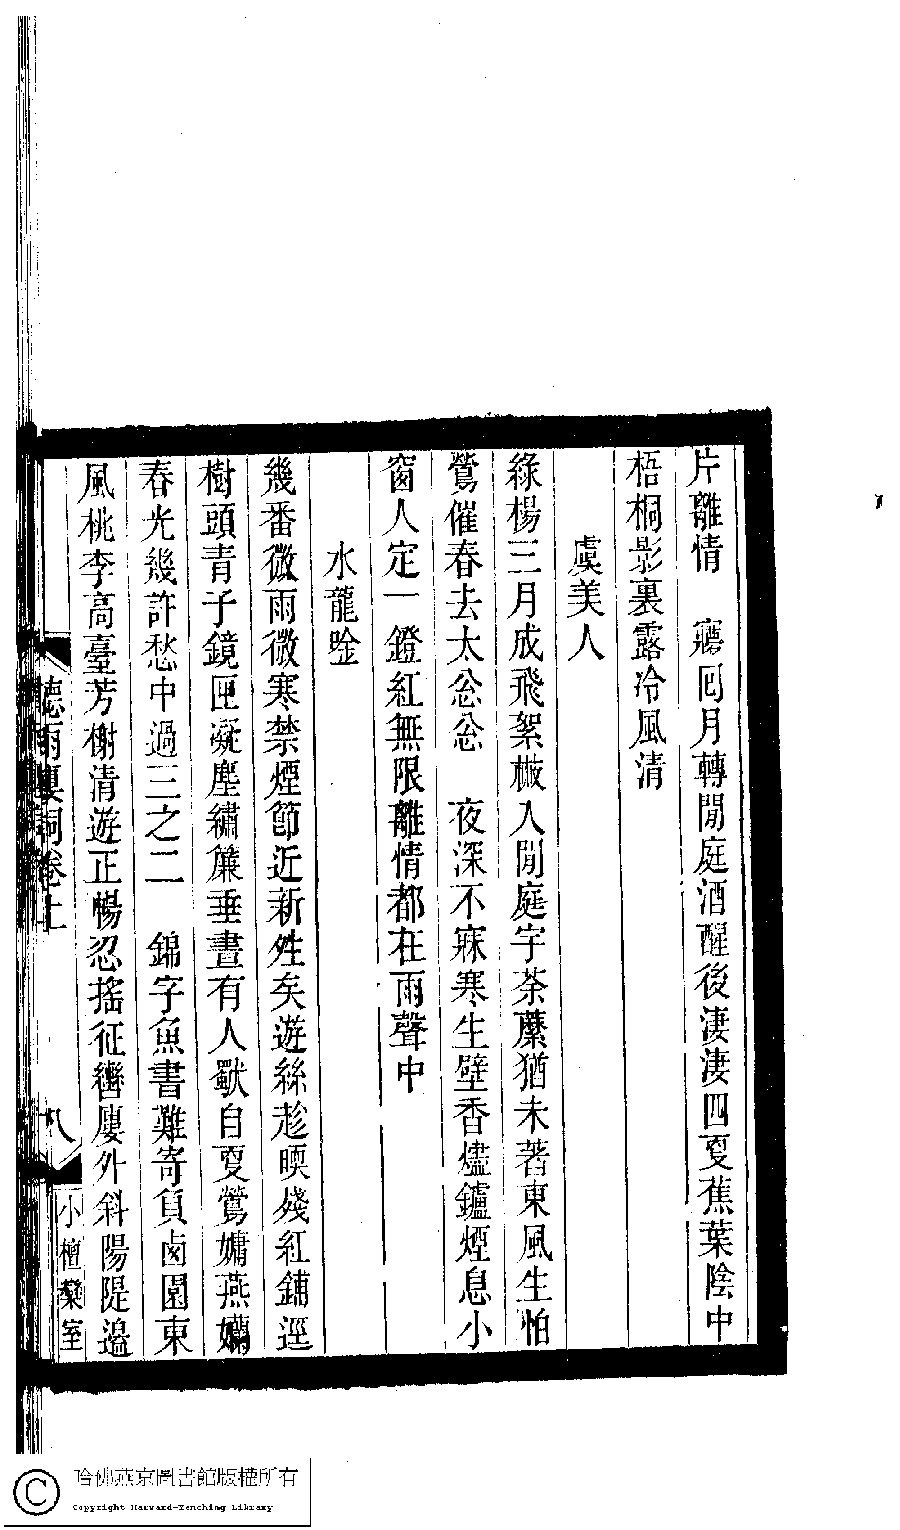 片離情　寱囘月轉閒庭酒醒後淒淒四叓蕉葉陰中
梧桐影裏露冷風清
虞美人
綠楊三月成飛絮檄入閒庭宇荼蘼猶未著東風生怕
鶯催春去太怱怱　夜深不寐寒生壁香燼鑪煙息小
窗人定一鐙紅無限離情都在雨聲中
水龍唫
幾番微雨微寒禁煙節近新姓矣遊絲趁㬉殘紅鋪逕
樹頭青子鏡匣凝塵繡簾垂晝有人獸自叓鶯慵燕嬾
春光幾許愁中過三之二　錦字魚書難寄負鹵園東
風桃李高臺芳榭清遊正暢忍搖征轡廔外斜陽隄邉
聽雨廔詞卷上
八
小檀欒室
哈佛燕京圖書館版權所有
Copyright Harvard-Yenching Library